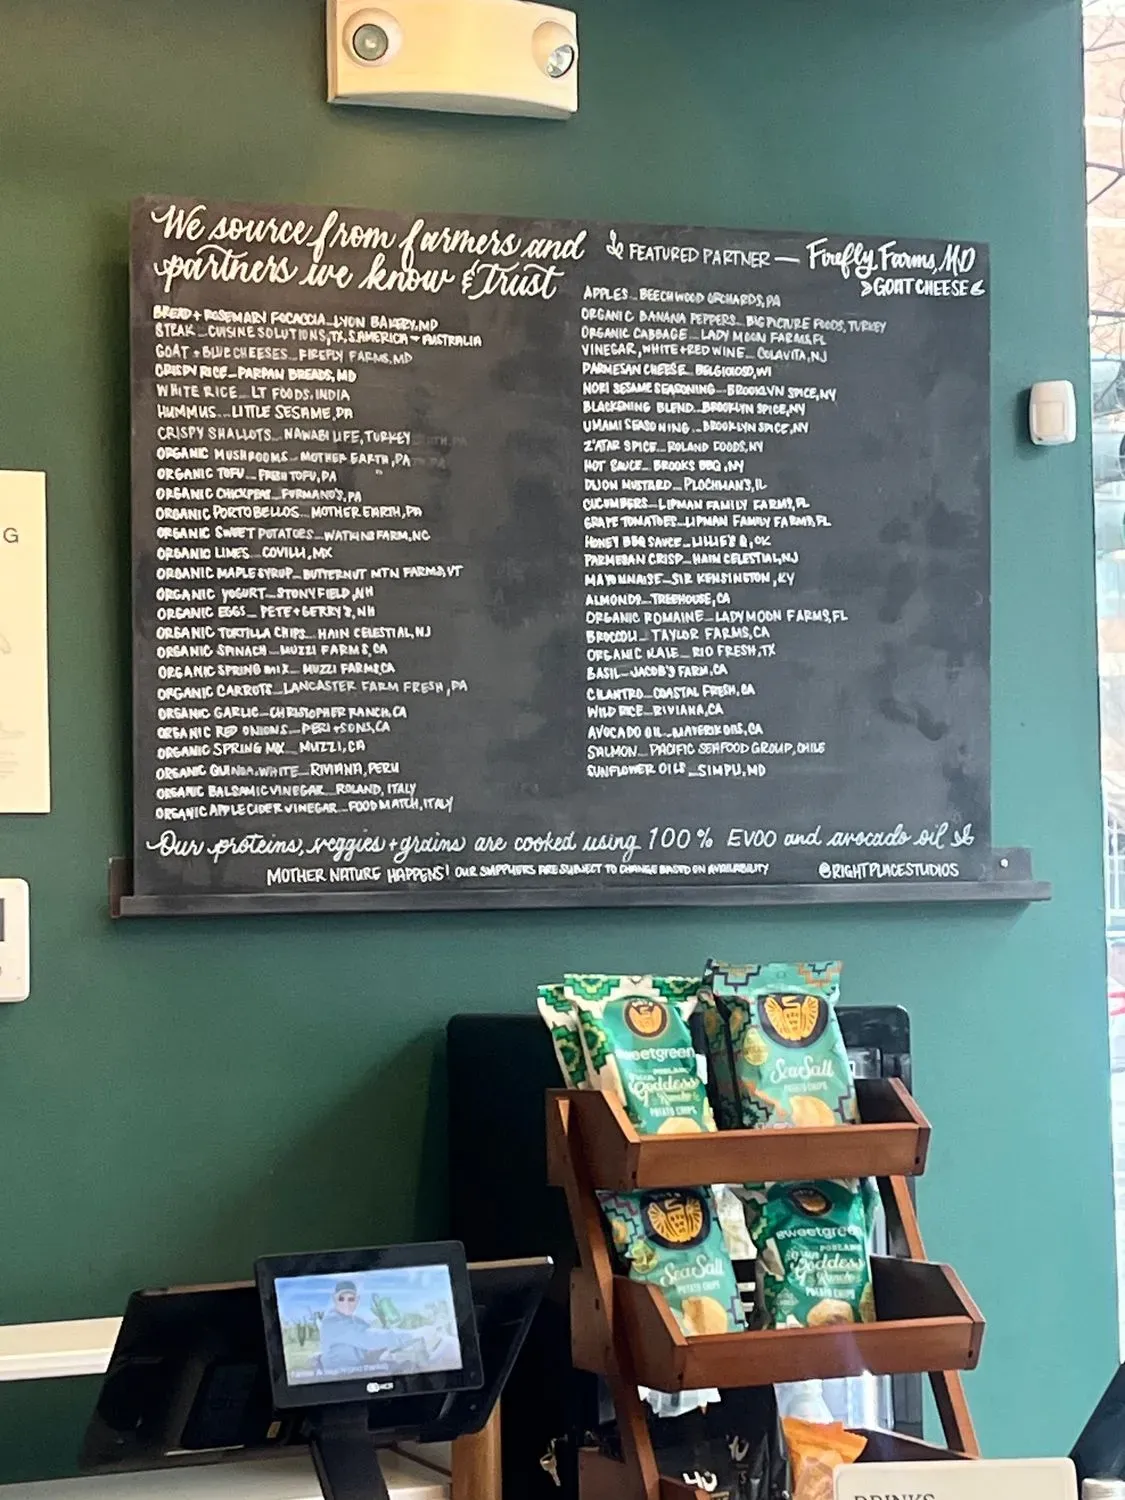 We source from farmers and
partners we know & trust
FEATURED PARTNER — Firefly Farms, MD
GOAT CHEESE
BREAD + ROSEMARY FOCACCIA LYON BAKERY, MD
STEAK CUISINE SOLUTIONS, S. AMERICA AUSTRALIA
GOAT + BLUE CHEESES FIREFLY FARMS, MD
CRISPY RICE PARPAN BREADS, MD
WHITE RICE LT FOODS, INDIA
HUMMUS LITTLE SESAME, PA
CRISPY SHALLOTS NAWABI LIFE, TURKEY
ORGANIC MUSHROOMS MOTHER EARTH, PA
ORGANIC TOFU FRESH TOFU, PA
ORGANIC CHICKPEAS FURMANO'S, PA
ORGANIC PORTOBELLOS MOTHER EARTH, PA
ORGANIC SWEET POTATOES WATKINS FARM, NC
ORGANIC LIMES COVILLI, MX
ORGANIC MAPLE SYRUP BUTTERNUT MTN FARMS, VT
ORGANIC YOGURT STONYFIELD, NH
ORGANIC EGGS PETE + GERRY'S, NH
ORGANIC TORTILLA CHIPS HAIN CELESTIAL, NJ
ORGANIC SPINACH MUZZI FARMS, CA
ORGANIC SPRING MIX MUZZI FARMS, CA
ORGANIC CARROTS LANCASTER FARM FRESH, PA
ORGANIC GARLIC CHRISTOPHER RANCH, CA
ORGANIC RED ONIONS PERI + SONS, CA
ORGANIC SPRING MX MUZZI, CA
ORGANIC QUINOA, WHITE RIVIANA, PERU
ORGANIC BALSAMIC VINEGAR ROLAND, ITALY
ORGANIC APPLE CIDER VINEGAR FOOD MATCH, ITALY
APPLES BEECHWOOD ORCHARDS, PA
ORGANIC BANANA PEPPERS BIG PICTURE FOODS, TURKEY
ORGANIC CABBAGE LADY MOON FARMS, FL
VINEGAR, WHITE + RED WINE COLAVITA, NJ
PARMESAN CHEESE BELGIOIOSO, WI
NORI SESAME SEASONING BROOKLYN SPICE, NY
BLACKENING BLEND BROOKLYN SPICE, NY
UMAMI SEASONING BROOKLYN SPICE, NY
Z'ATAR SPICE ROLAND FOODS, NY
HOT SAUCE BROOKS BBQ, NY
DIJON MUSTARD PLOCHMAN'S, IL
CUCUMBERS LIPMAN FAMILY FARMS, FL
GRAPE TOMATOES LIPMAN FAMILY FARMS, FL
HONEY BBQ SAUCE LILLIE'S Q, OK
PARMESAN CRISP HAIN CELESTIAL, NJ
MAYONNAISE SIR KENSINGTON, KY
ALMONDS TREEHOUSE, CA
ORGANIC ROMAINE LADY MOON FARMS, FL
BROCCOLI TAYLOR FARMS, CA
ORGANIC KALE RIO FRESH, TX
BASIL JACOB'S FARM, CA
CILANTRO COASTAL FRESH, CA
WILD RICE RIVIANA, CA
AVOCADO OIL MAVERIK OILS, CA
SALMON PACIFIC SEAFOOD GROUP, CHILE
SUNFLOWER OILS SIMPLI, MD
Our proteins, veggies + grains are cooked using 100% EVOO and avocado oil
MOTHER NATURE HAPPENS! OUR SUPPLIERS ARE SUBJECT TO CHANGE BASED ON AVAILABILITY
@RIGHTPLACESTUDIOS
G
sweetgreen
Goddess
Ranch
POTATO CHIPS
Sea Salt
POTATO CHIPS
Sea Salt
POTATO CHIPS
sweetgreen
Goddess
Ranch
POTATO CHIPS
NCR
DRINKS